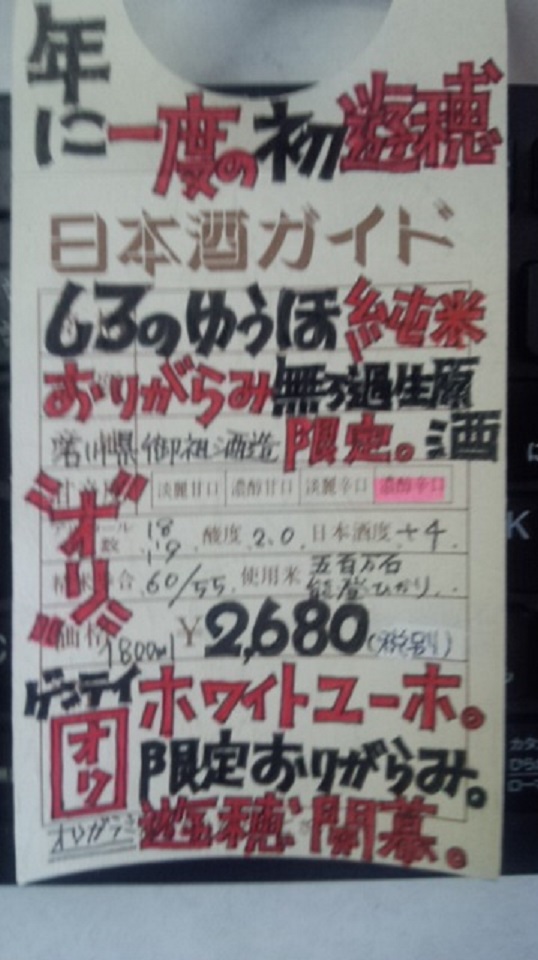 年に一度の初遊穂
日本酒ガイド
しろのゆうほ純米
おりがらみ無ろ過生原酒
石川県御祖酒造 限定。
淡麗甘口 濃醇甘口 淡麗辛口 濃醇辛口
オリ
18 19 酸度 2.0 日本酒度 +4
60/55 使用米 五百万石 能登ひかり
価格 1800ml ¥2,680(税別)
ゲンテイ ホワイトユーホ。
オリ 限定おりがらみ。
オリガラミ 遊穂開幕。